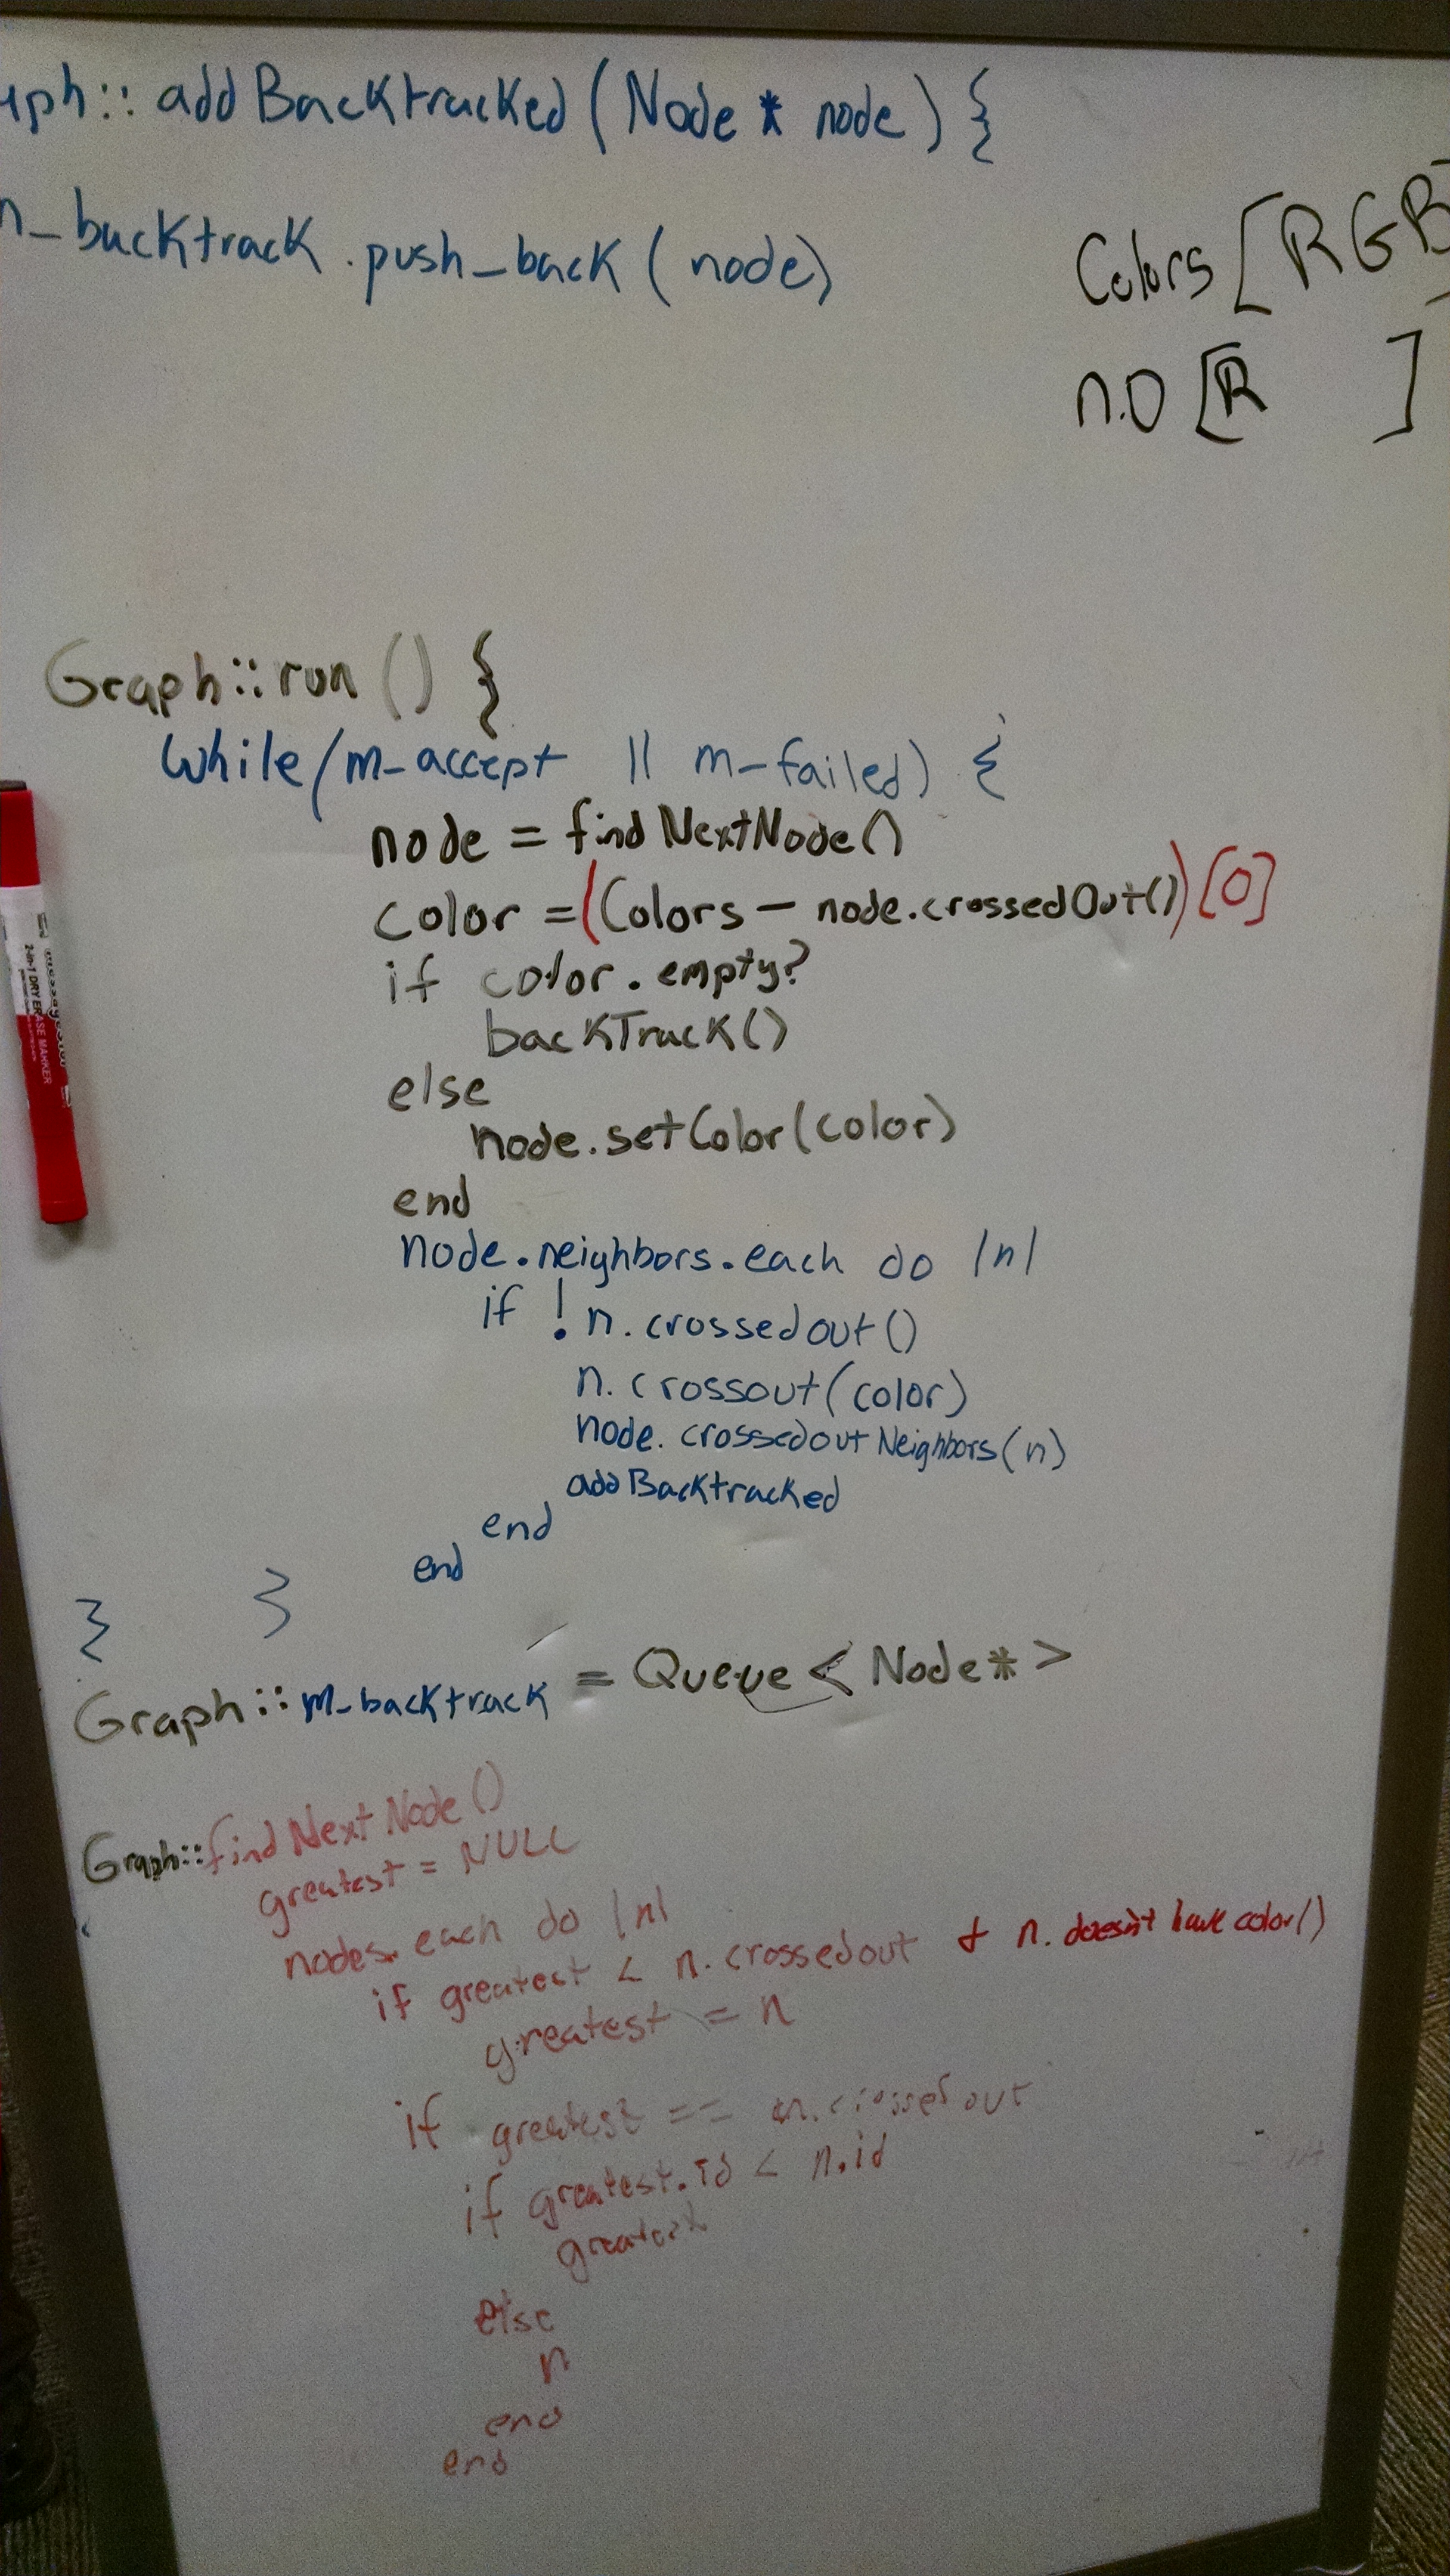 aph::addBacktracked(Node * node) {
m_backtrack.push_back(node)
Colors [RGB]
n.O [R ]
Graph::run() {
while(m_accept || m_failed) {
node = findNextNode()
color = (Colors - node.crossedOut())[0]
if color.empty?
backTrack()
else
node.setColor(color)
end
node.neighbors.each do |n|
if !n.crossedout()
n.crossout(color)
node.crossedoutNeighbors(n)
addBacktracked
end
end
} }
Graph::m_backtrack = Queue<Node*>
Graph::findNextNode()
greatest = NULL
nodes.each do |n|
if greatest < n.crossedout & n.doesn't have color()
greatest = n
if greatest == n.crossedout
if greatest.id < n.id
greatest
else
n
end
end
2-in-1 DRY ERASE MARKER